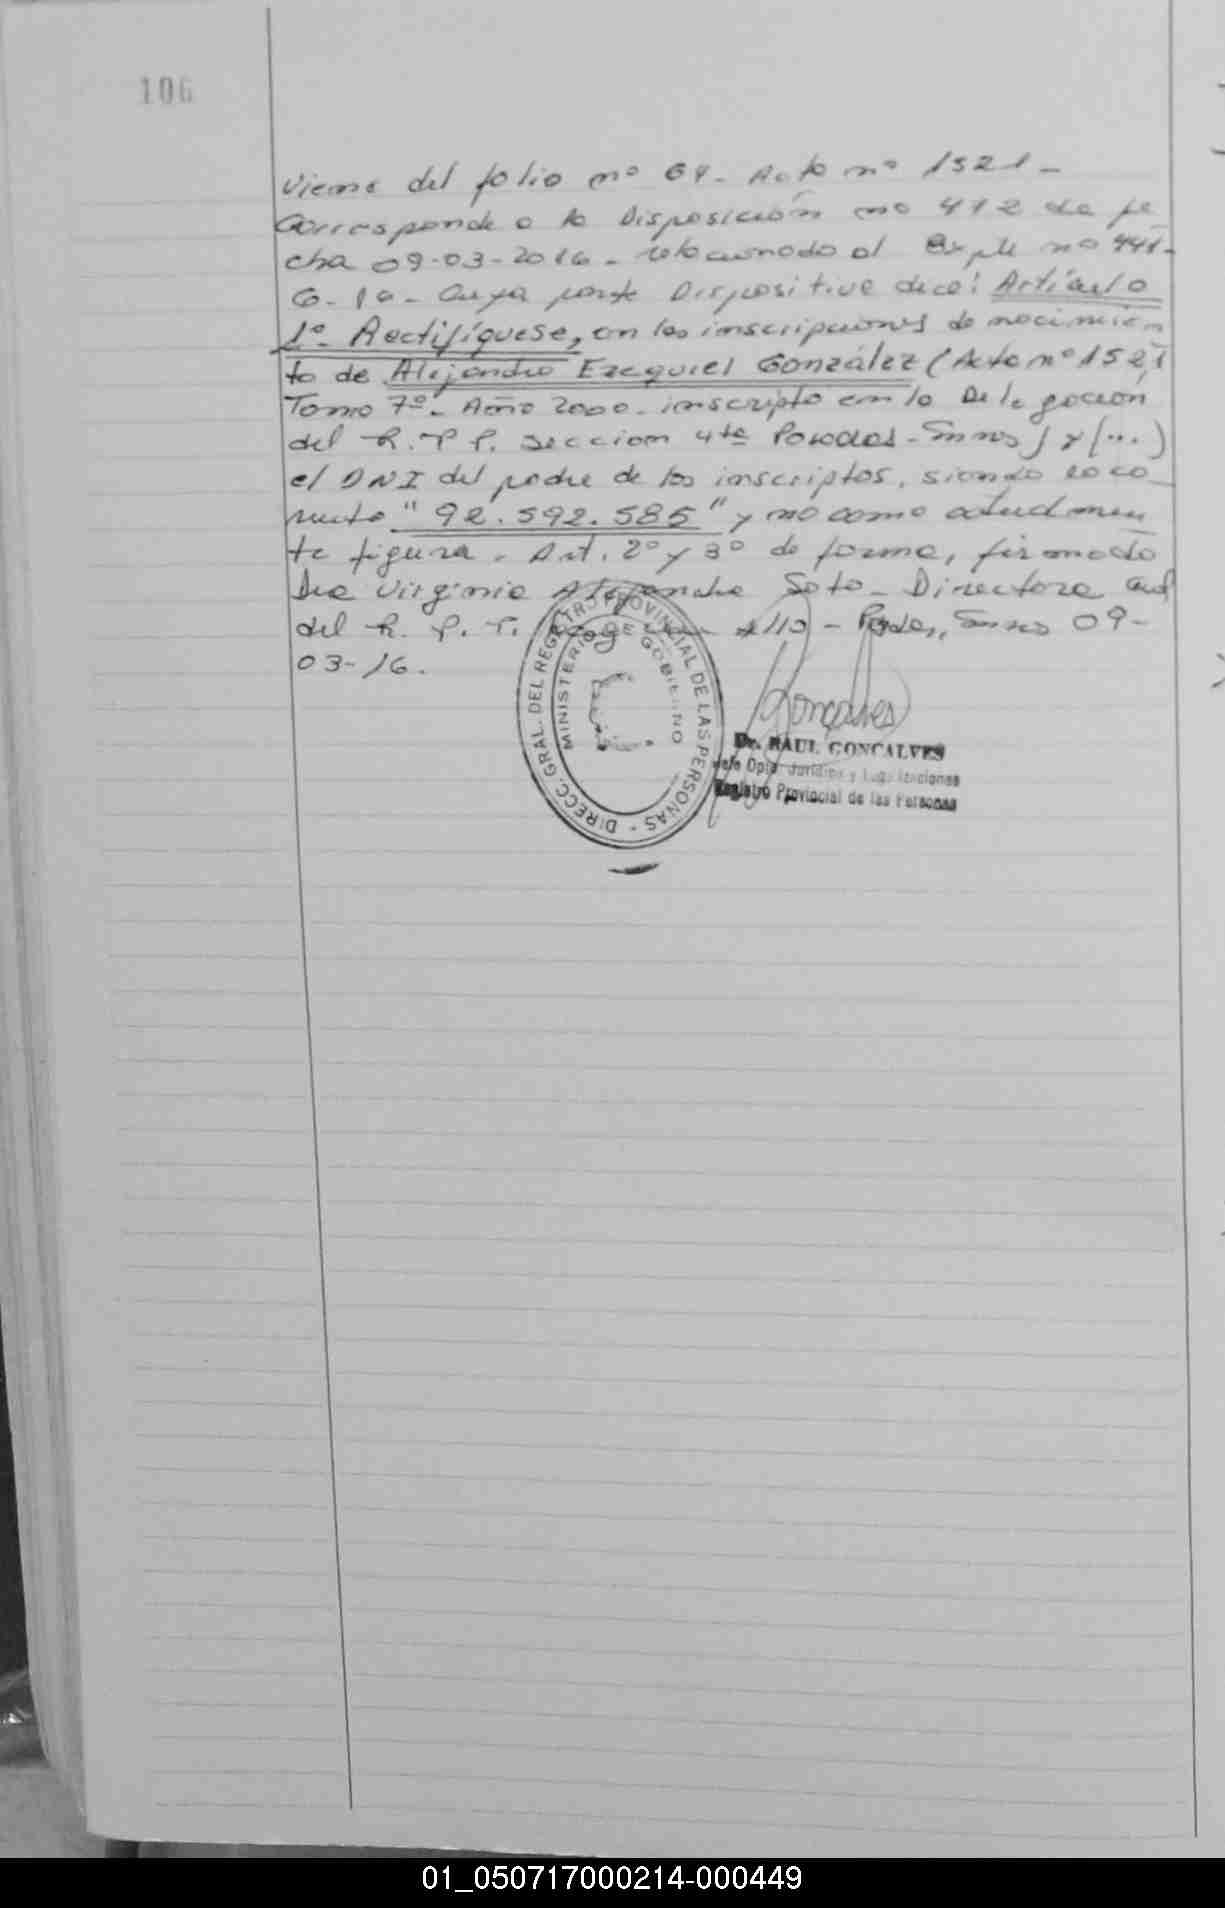 106
Viene del folio nº 64 - Acta nº 1521 -
Corresponde a la Disposición nº 412 de fe
cha 09-03-2016 - relacionado al Expte nº 441-
G-16 - Cuya parte Dispositiva dice: Artículo
1º- Rectifíquese, en las inscripciones de nacimien
to de Alejandro Ezequiel González (Acta nº 1521
Tomo 7º - Año 2000 - inscripto en la Delegación
del R.P.P. Sección 4ta Posadas - ) y (...)
el DNI del padre de los inscriptos, siendo lo co
rrecto "92.592.585" y no como actualmen
te figura. Art. 2º y 3º de forma, firmado
Dra Virginia Alejandra Soto - Directora
del R.P.P. - 09-
03-16.
DIRECC. GRAL. DEL REGISTRO PROVINCIAL DE LAS PERSONAS -
MINISTERIO DE GOBIERNO
Goncalves
Dr. RAUL GONCALVES
Jefe Dpto. Jurídico y Legalizaciones
Registro Provincial de las Personas
01_050717000214-000449